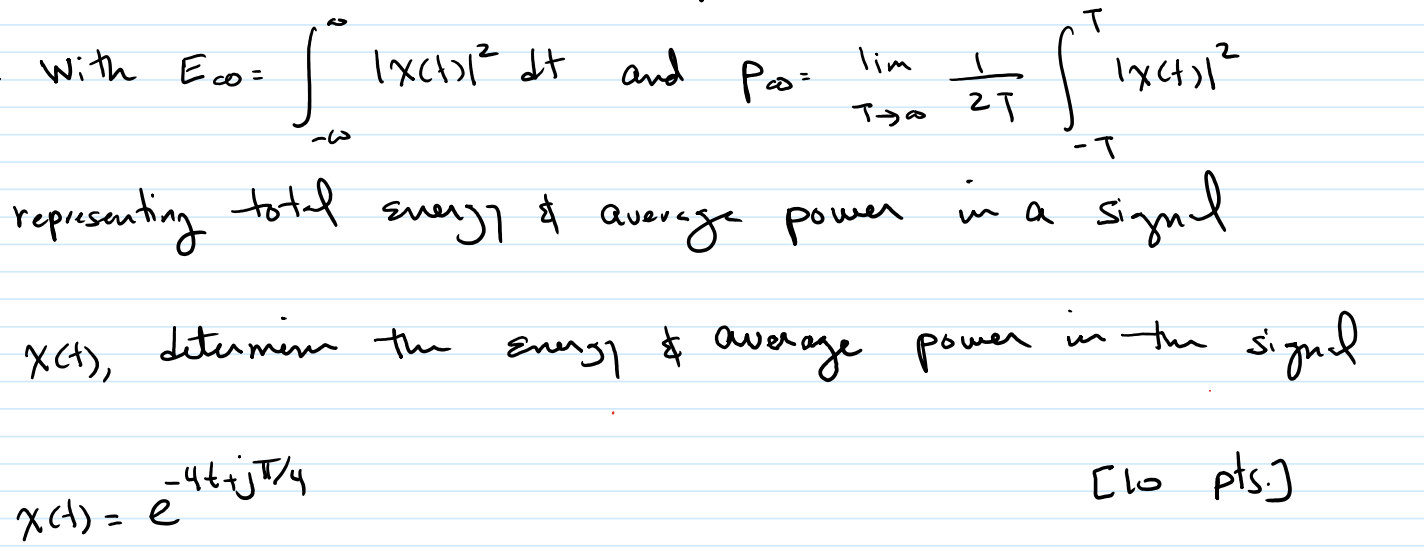 . With E∞ = ∫_{-∞}^{∞} |x(t)|² dt and P∞ = lim_{T→∞} 1/2T ∫_{-T}^{T} |x(t)|²
representing total energy & average power in a signal
x(t), determine the energy & average power in the signal
x(t) = e^{-4t+jπ/4} [10 pts.]